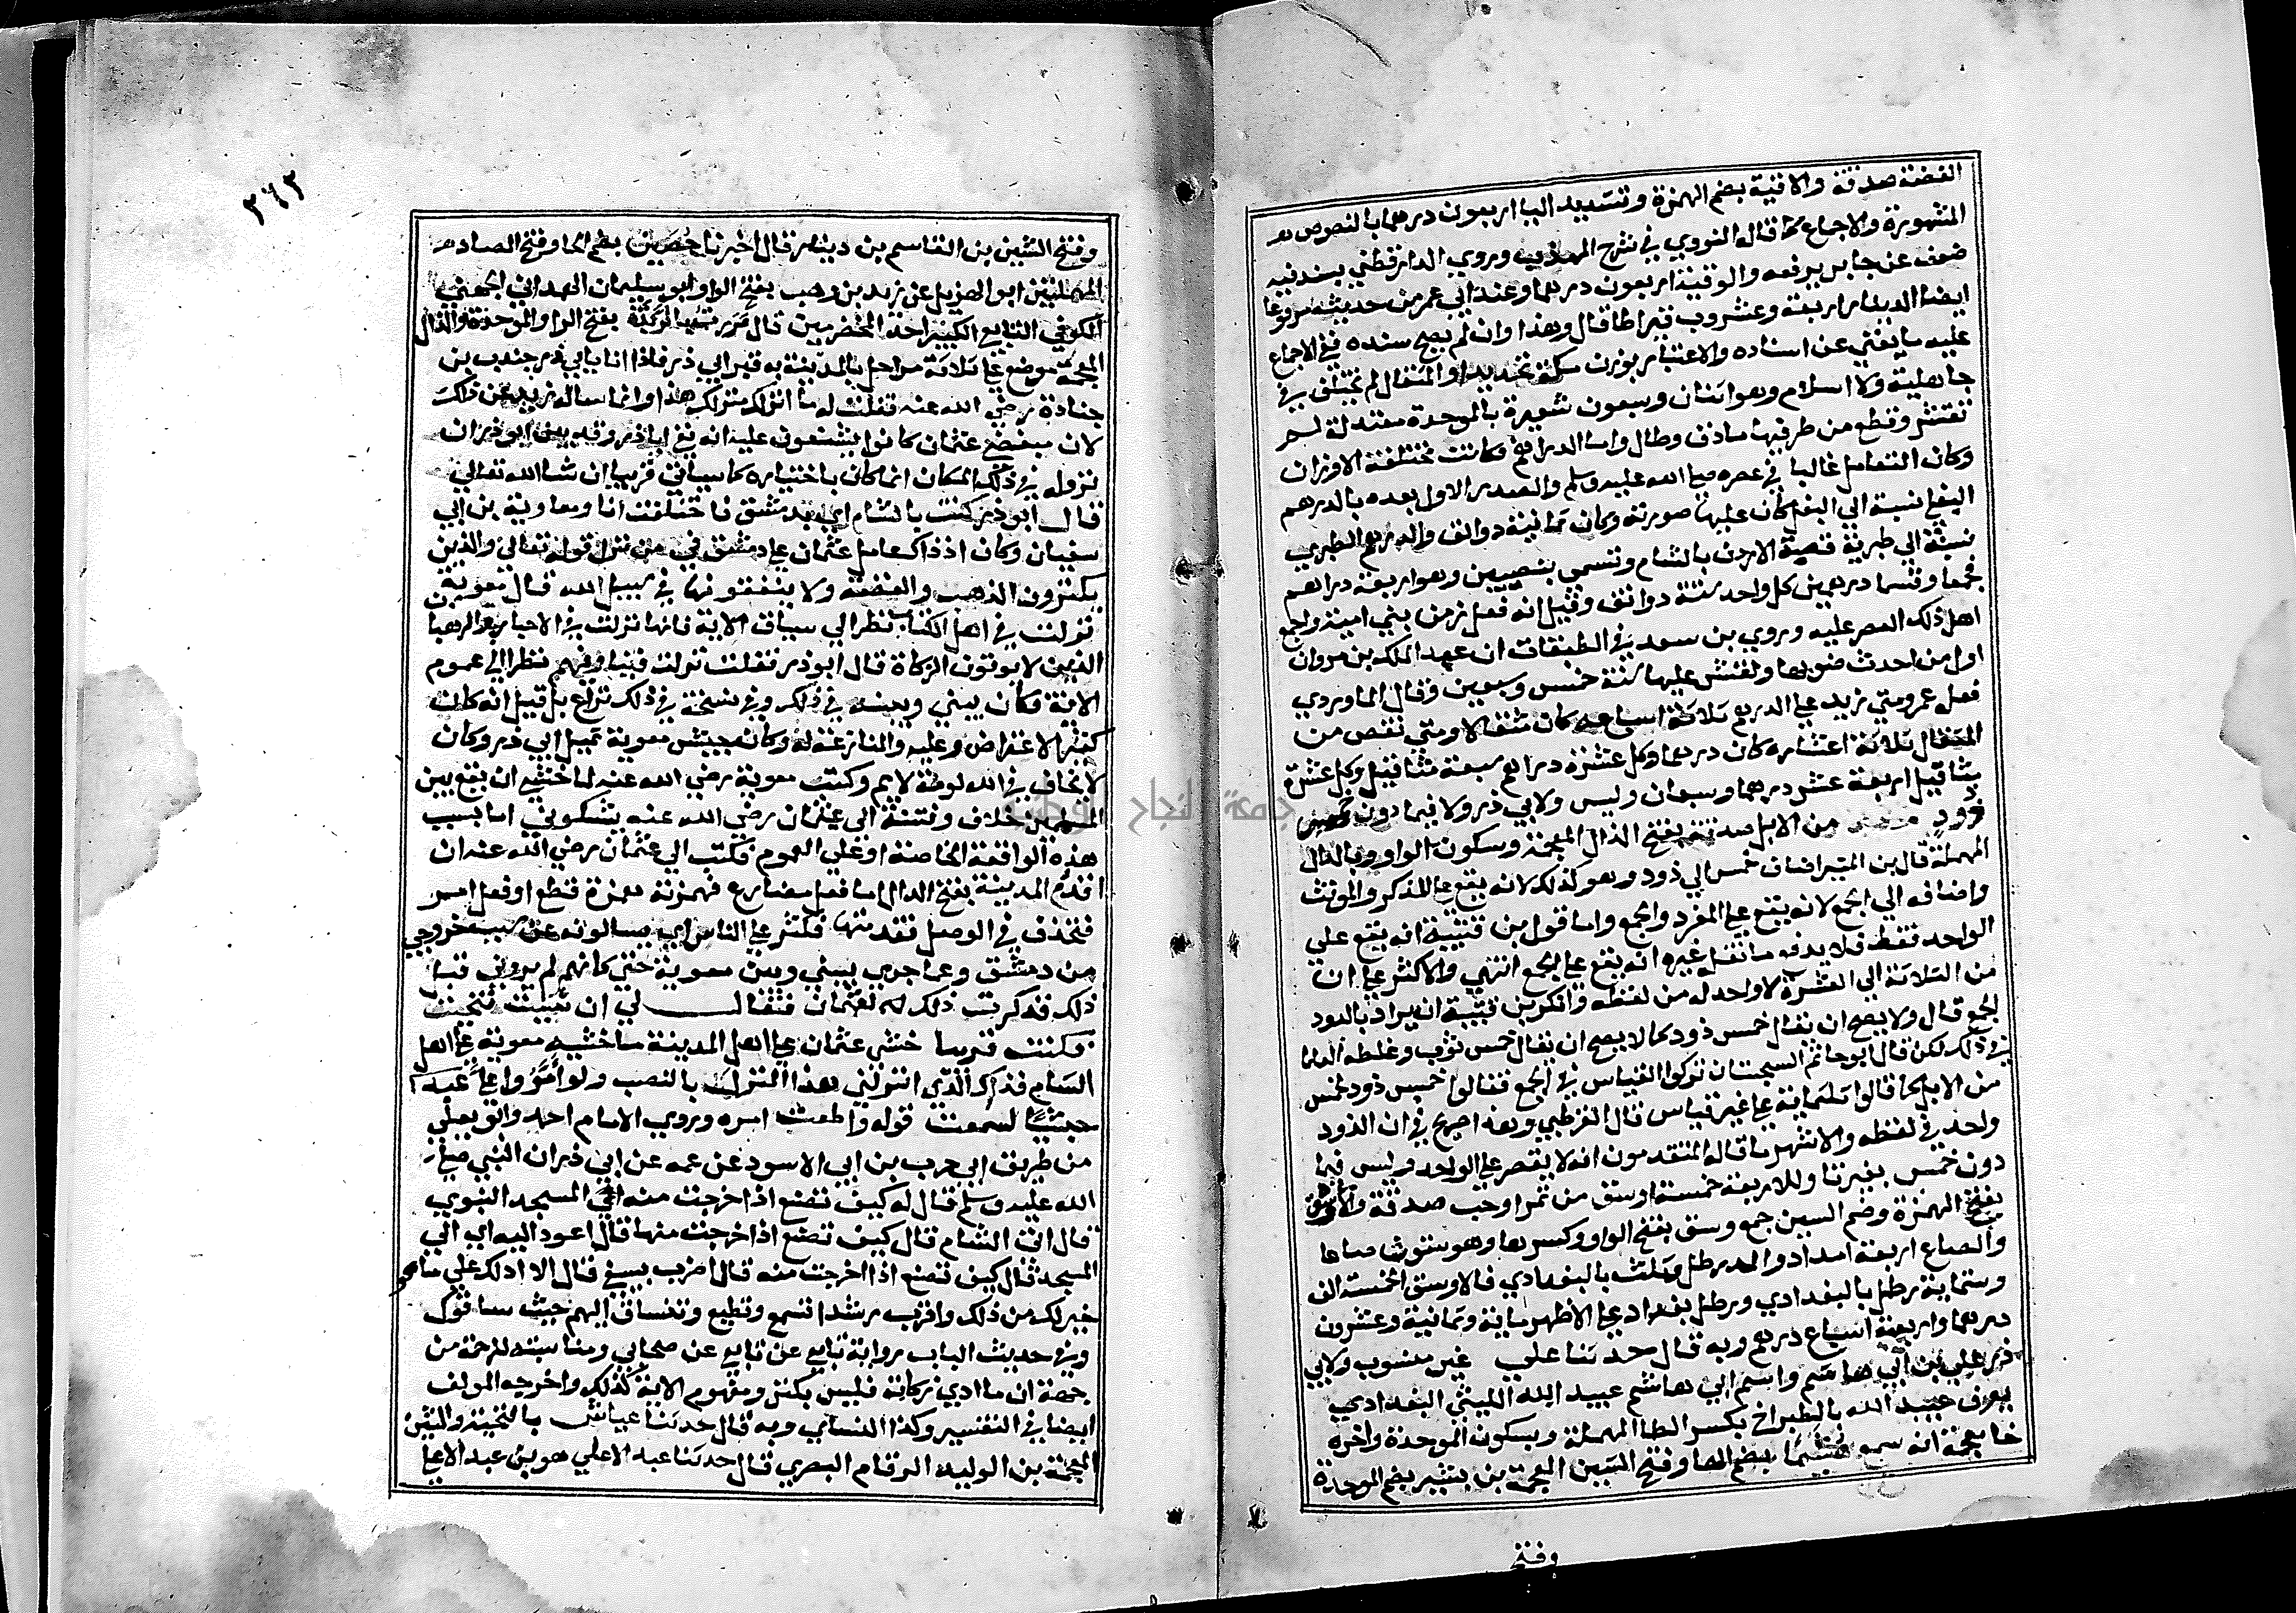 الفضة صدقة والاقية بضم الهمزة وتشديد اليا اربعون درهما بالنصوص
المشهورة والاجماع كما قاله النووي في شرح المهذب وروي الدارقطني بسند فيه
ضعف عن جابر يرفعه والوقية اربعون درهما وعند ابي عمر من حديثه مرفوعا
ايضا الدينار اربعة وعشرون قيراطا قال وهذا وان لم يصح سنده ففي الاجماع
عليه ما يغني عن اسناده والاعتبار بوزن مكة تحديدا والمثقال لم يختلف في
جاهلية ولا اسلام وهو اثنان وسبعون شعيرة بالموحدة معتدلة لم
تقشر وقطع من طرفيها مادق وطال واما الدراهم فكانت مختلفة الاوزان
وكان التعامل غالبا في عصره صلي الله عليه وسلم والصدر الاول بعده بالدرهم
البغلي نسبة الي البغل كان عليها صورته وكان ثمانية دوانق والدرهم الطبري
نسبة الي طبرية قصبة الاردن بالشام وتسمي بنصيبين وهو اربعة دراهم
فجمعا وقسما درهمين كل واحد ستة دوانق وقيل انه فعل زمن بني امية واجمع
اهل ذلك العصر عليه وروي بن سعد في الطبقات ان عبد الملك بن مروان
اول من احدث ضربها ونقش عليها سنة خمس وسبعين وقال الماوردي
فعل عمر ومتي زيد علي الدرهم ثلاثة اسباعه كان مثقالا ومتي نقص من
المثقال ثلاثة اعشاره كان درهما وكل عشرة دراهم سبعة مثاقيل وكل عشرة
مثاقيل اربعة عشر درهما وسبعان وليس ولابي ذر ولا فيما دون خمس
ذود من الابل صدقة بفتح الذال المعجمة وسكون الواو وبالدال
المهملة قال بن المنير اضاف خمس الي ذود وهو كذلك لانه يقع علي المذكر والمونث
واضافه الي الجمع لانه يقع علي المفرد والجمع واما قول بن قتيبة انه يقع علي
الواحد فقط فلا يدفع ما نقل غيره انه يقع علي الجمع انتهي والاكثر علي ان
من الثلاثة الي العشرة لا واحد له من لفظه وانكر بن قتيبة ان يراد بالذود
الجمع قال ولا يصح ان يقال خمس ذود كما لا يصح ان يقال خمس ثوب وغلطه العلما
في ذلك لكن قال ابو حاتم السجستان تركوا القياس في الجمع فقالوا خمس ذود لخمس
من الابل كما قالوا ثلثماية علي غير قياس قال القرطبي وهذا صريح في ان الذود
واحد في لفظه والاشهر ما قاله المتقدمون انه لا يقصر علي الواحد وليس فيما
دون خمس بغير تا وللاربعة خمسة اوسق من تمر او حب صدقة والاوسق
بفتح الهمزة وضم السين جمع وسق بفتح الواو وكسرها وهو ستون صاعا
والصاع اربعة امداد والمد رطل وثلث بالبغدادي فالاوسق الخمسة الف
وستماية رطل بالبغدادي ورطل بغداد علي الاظهر ماية وثمانية وعشرون
درهما واربعة اسباع درهم وبه قال حدثنا علي غير منسوب ولابي
ذر علي بن ابي هاشم واسم ابي هاشم عبيد الله الليثي البغدادي
يعرف عبيد الله بالطبراخ بكسر الطا المهملة وبسكون الموحدة واخره
خا معجمة انه سمع هشيما بضم الها وفتح الشين المعجمة بن بشير بضم الموحدة
وفتح
٣٦٢
وفتح الشين بن القاسم بن دينار قال اخبرنا حصين بضم الحا وفتح الصاد
المهملتين ابو الهذيل عن زيد بن وهب بفتح الواو ابو سليمان الهمداني الجهني
الكوفي التابعي الكبير احد المخضرمين قال مررت بالربذة بفتح الرا والموحدة والذال
المعجمة موضع علي ثلاثة مراحل بالمدينة به قبر ابي ذر فاذا انا بابي ذر جندب بن
جنادة رضي الله عنه فقلت له ما انزلك منزلك هذا وانما ساله زيد عن ذلك
لان مبغضي عثمان كانوا يشنعون عليه انه نفي اباذر وقد بين ابو ذر ان
نزوله في ذلك المكان انما كان باختياره كما سياتي قريبا ان شا الله تعالي
قال ابو ذر كنت بالشام اي بدمشق فاختلفت انا ومعاوية بن ابي
سفيان وكان اذ ذاك عامل عثمان علي دمشق في من نزل قوله تعالي والذين
يكنزون الذهب والفضة ولا ينفقونها في سبيل الله قال معوية
نزلت في اهل الكتاب نظرا الي سياق الاية فانها نزلت في الاحبار والرهبا
الذين لا يوتون الزكاة قال ابو ذر فقلت نزلت فينا وفيهم نظرا الي عموم
الاية فكان بيني وبينه في ذلك وفي نسخة في ذلك نزاع بل قيل انه كان
كثير الاعتراض وعليه والمنازعة له وكان بجيش معوية تميل الي ذر وكان
لا يخاف في الله لومة لايم وكتب معوية رضي الله عنه لما خشي ان يقع بين
المسلمين خلاف وفتنة الي عثمان رضي الله عنه يشكوني اما بسبب
هذه الواقعة الخاصة او علي العموم فكتب الي عثمان رضي الله عنه ان
اقدم المدينة بفتح الدال اما فعل مضارع فهمزته همزة قطع او فعل امر
فتحذف في الوصل فقدمتها فكثر علي الناس اي يسالونه عن سبب خروجي
من دمشق وعما جري بيني وبين معوية حتي كانهم لم يروني قبل
ذلك فذكرت ذلك له لعثمان فقال لي ان شيت تنحيت
فكنت قريبا خشي عثمان علي اهل المدينة ما خشيه معوية علي اهل
الشام فذاك الذي انزلني هذا المنزل بالنصب ولو امروا علي عبدا
حبشيا لسمعت قوله واطعت امره وروي الامام احمد وابو يعلي
من طريق ابي حرب بن ابي الاسود عن عمه عن ابي ذر ان النبي صلي
الله عليه وسلم قال له كيف تصنع اذا خرجت منه اي المسجد النبوي
قال اتي الشام قال كيف تصنع اذا خرجت منها قال اعود اليه اي الي
المسجد قال كيف تصنع اذا اخرجت منه قال اضرب بسيفي قال الا ادلك علي ما هو
خير لك من ذلك واقرب رشدا تسمع وتطيع وتنساق اليهم حيث ساقوك
وفي حديث الباب رواية تابعي عن تابعي عن صحابي ومناسبته للترجمة من
جهة ان ما ادي زكاته فليس بكنز ومفهوم الاية كذلك واخرجه المولف
ايضا في التفسير وكذا النساي وبه قال حدثنا عياش بالتحتية والشين
المعجمة بن الوليد الرقام البصري قال حدثنا عبد الاعلي هو بن عبد الاعلا
جامعة النجاح الوطنية